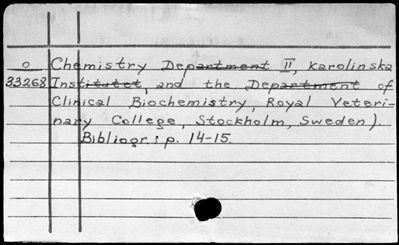 o Chemistry Department II, Karolinska
33268 Institutet, and the Department of
Clinical Biochemistry, Royal Veteri-
nary College, Stockholm, Sweden).
Bibliogr.: p. 14-15.